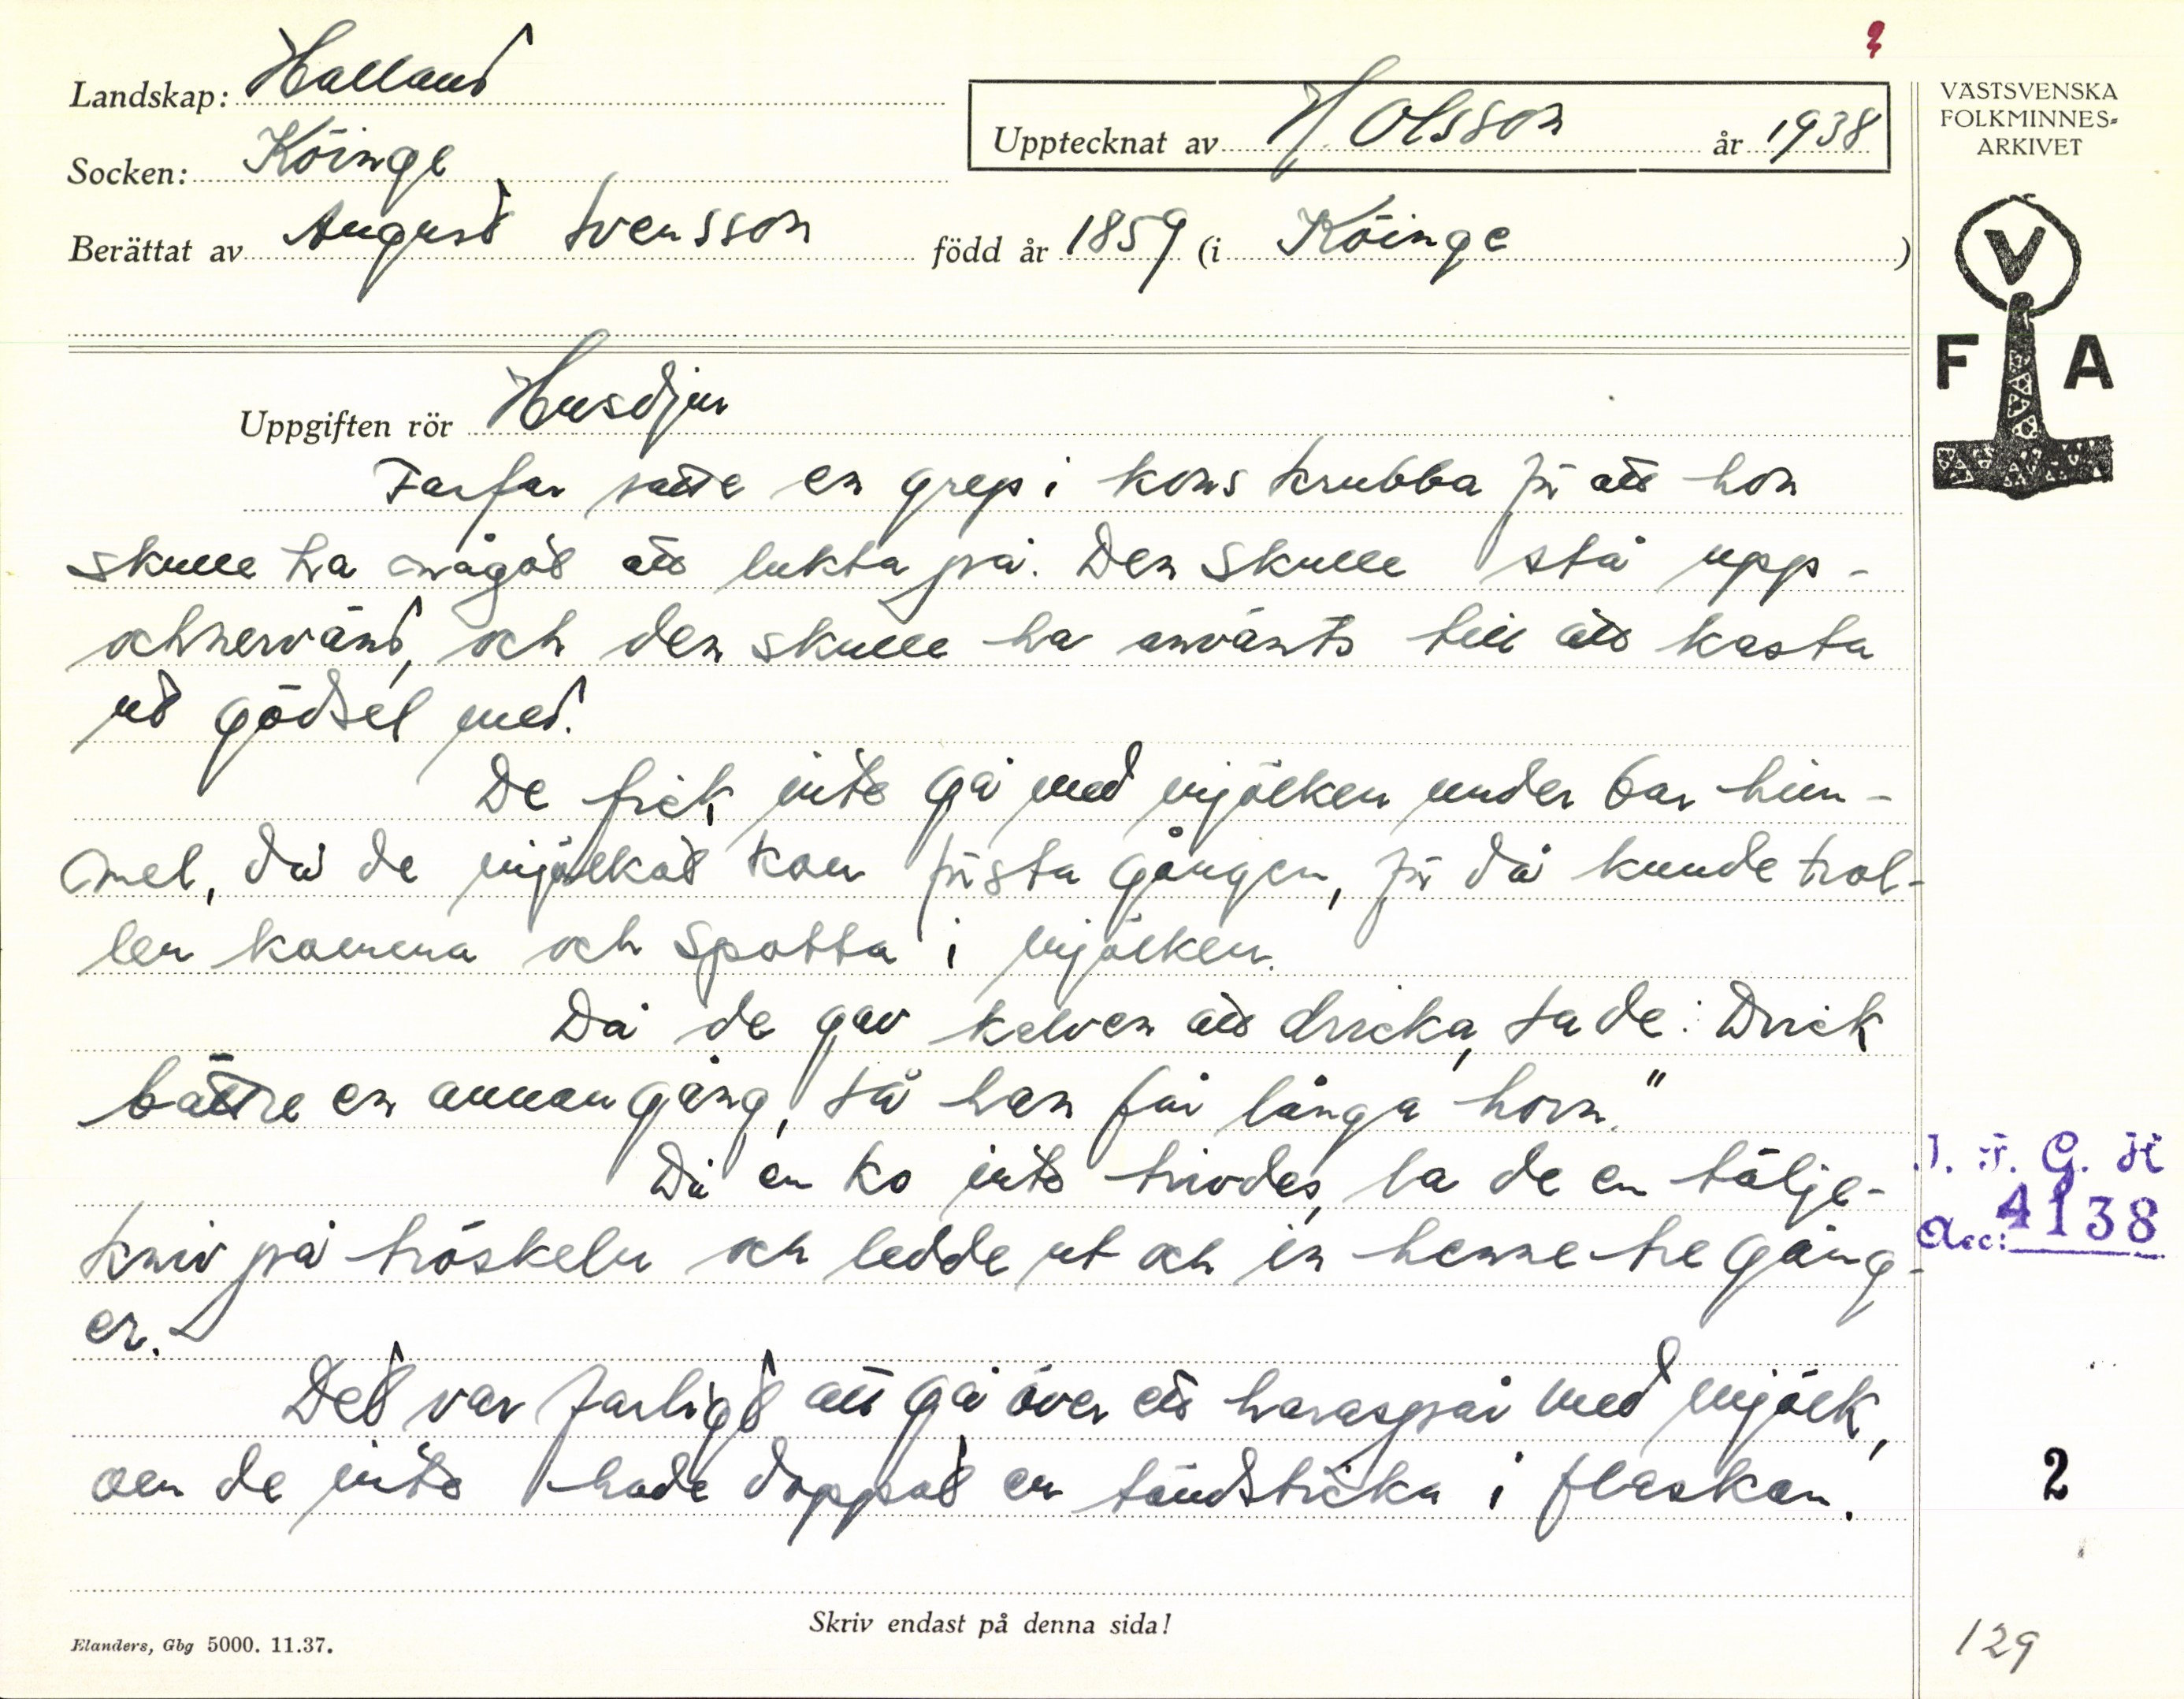 Landskap: Halland
Socken: Köinge
Upptecknat av H. Olsson år 1938
Berättat av August Svensson född år 1859 (i Köinge)
VÄSTSVENSKA
FOLKMINNES-
ARKIVET
V
F A
Uppgiften rör Husdjur
Farfar satte en grep i kons krubba för att hon
skulle ha något att lukta på. Den skulle stå upp-
ochnervänd, och den skulle ha använts till att kasta
ut gödsel med.
De fick inte gå med mjölken under bar him-
mel, då de mjölkat kon första gången, för då kunde trol-
len komma och spotta i mjölken.
Då de gav kalven att dricka, sa de: Drick
bättre en annan gång, så han får långa horn."
Då en ko inte trivdes, la de en tälje-
kniv på tröskeln och ledde ut och in henne tre gång-
er.
Det var farligt att gå över ett haraspår med mjölk,
om de inte hade doppat en tändsticka i flaskan.
I. F. G. H
Acc: 4138
2
129
Skriv endast på denna sida!
Elanders, Gbg 5000. 11.37.